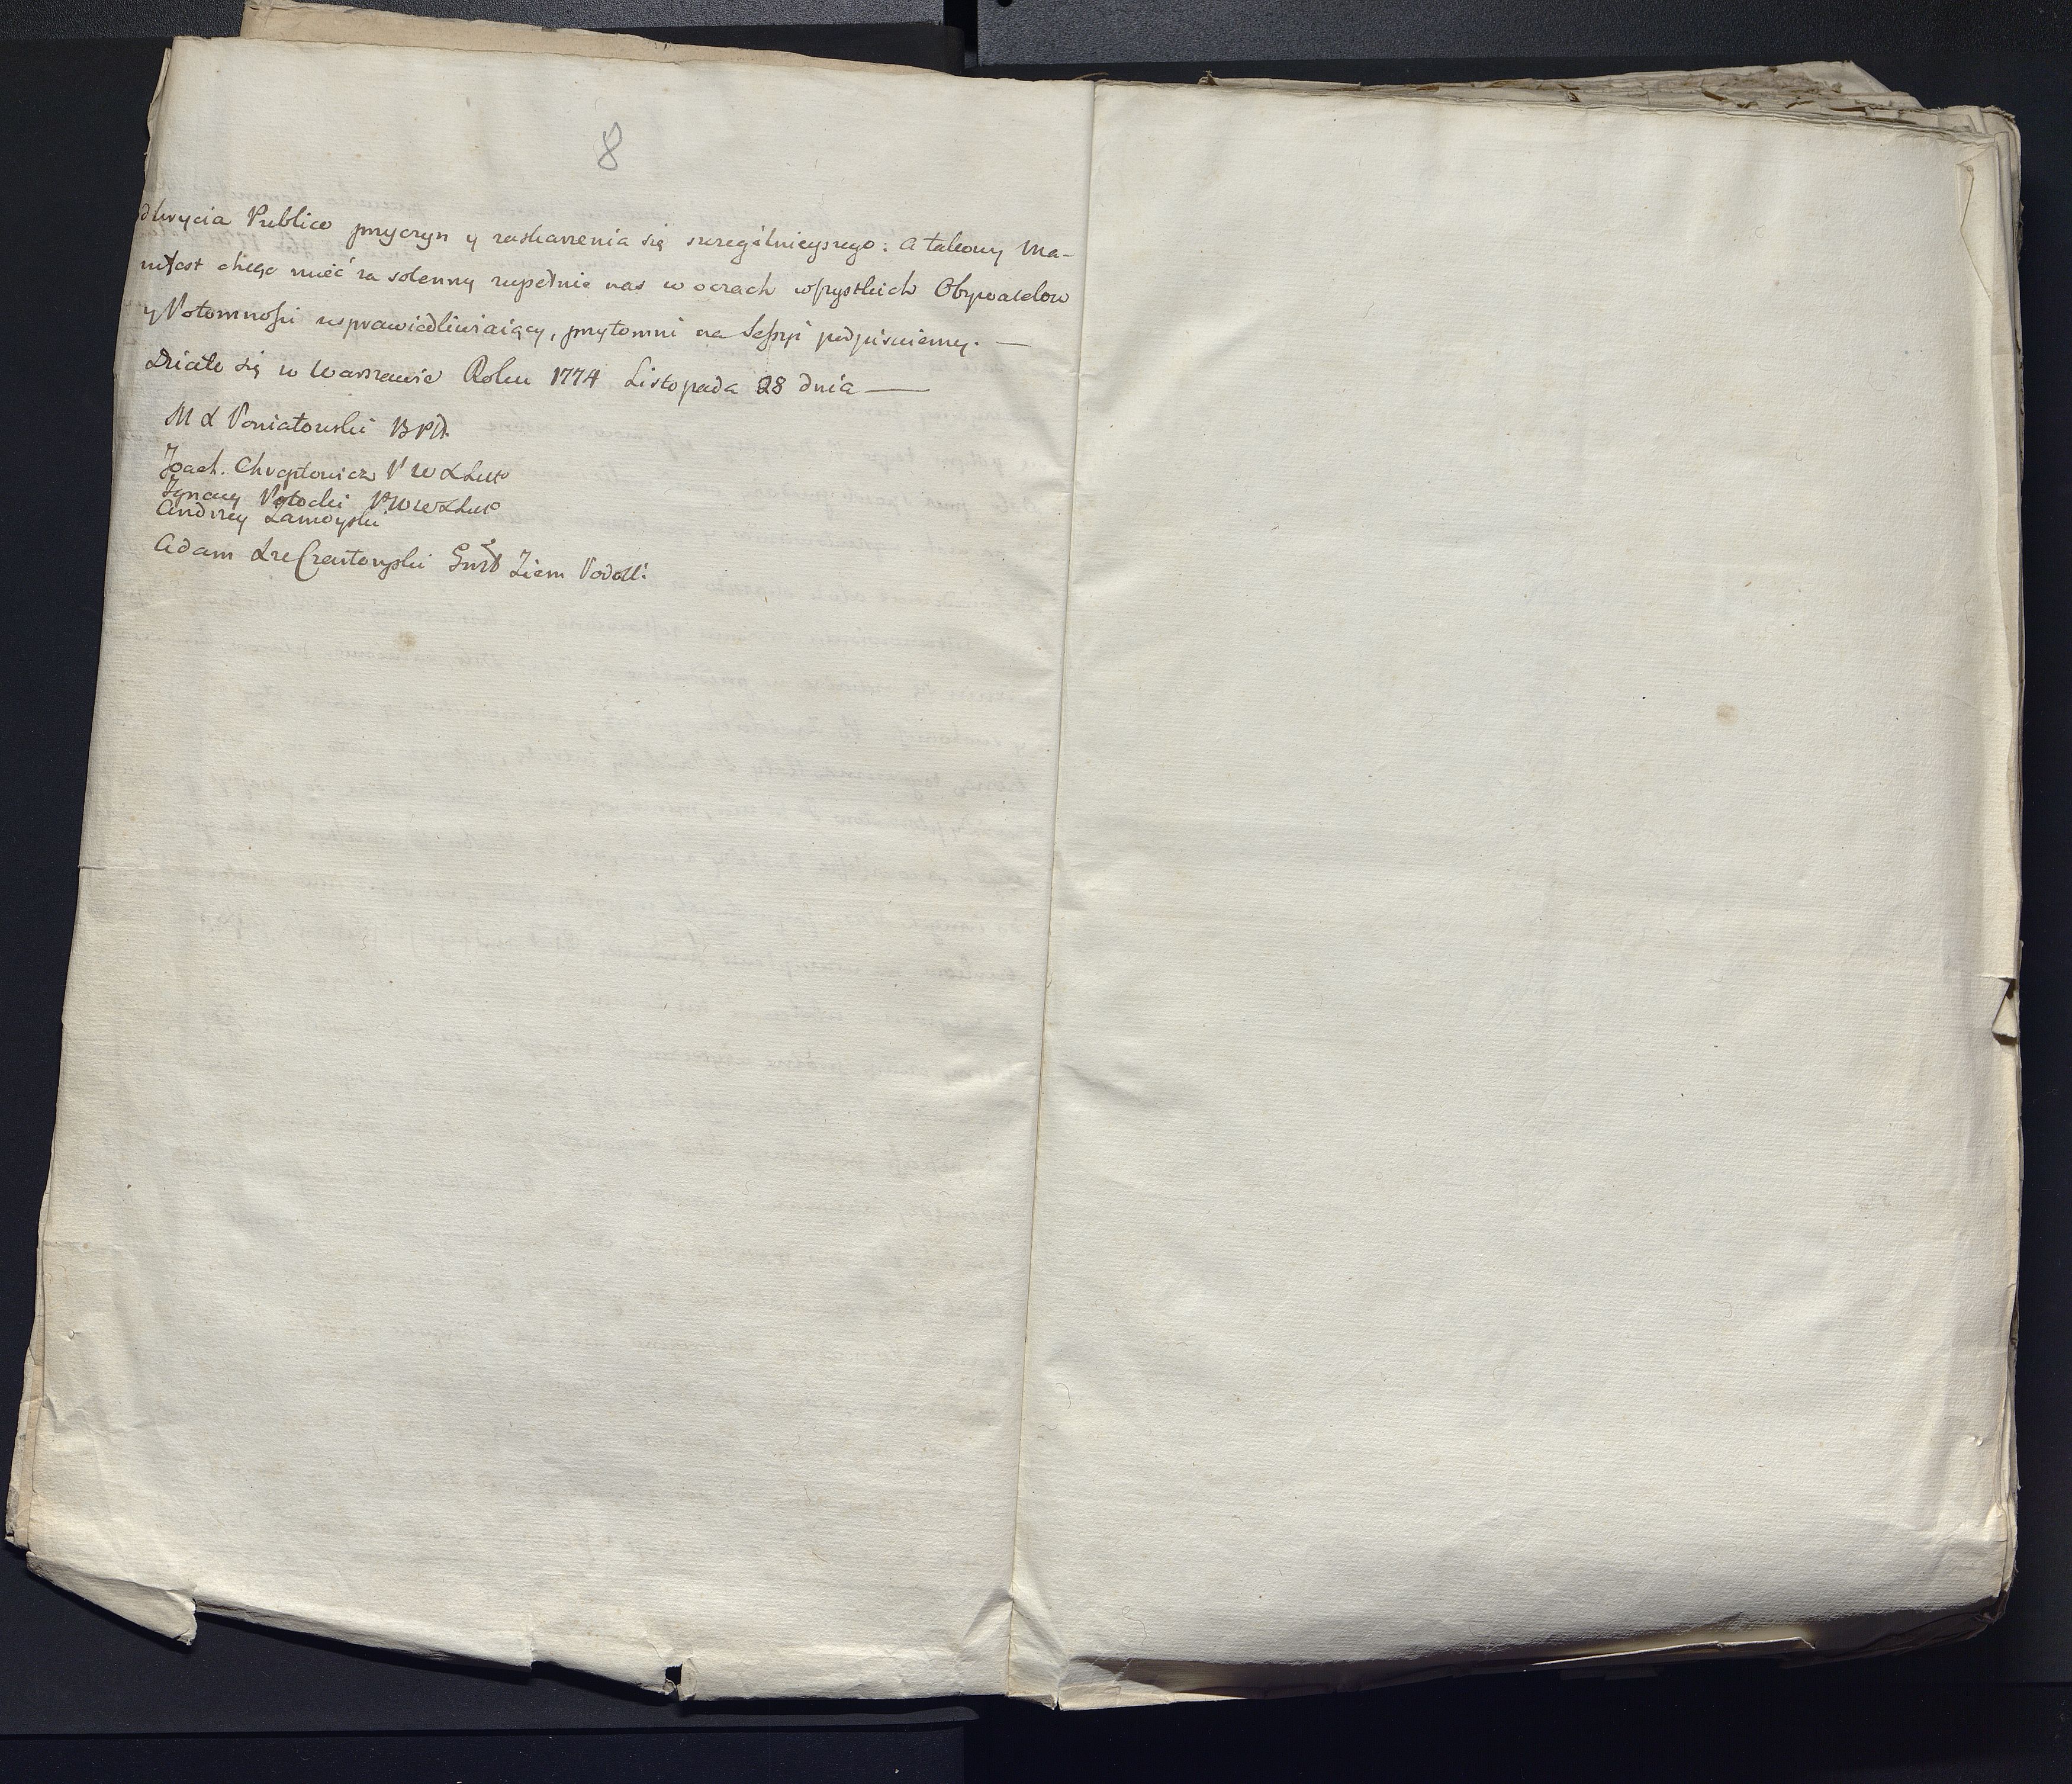 8
odkrycia Publico przyczyn y zaskarzenia się szczegolnieyszego: a takowy Ma-
nifest chcąc mieć za solenny zupełnie nas w oczach wszystkich Obywatelow
y Potomnosci usprawiedliwiaiący, przytomni na Sessyi podpisuiemy. —
Działo się w Warszawie Roku 1774 Listopada 28 dnia —
M X Poniatowski BPł.
Joach. Chreptowicz P W X Litto
Ignacy Potocki PWWXLitto
Andrzey Zamoyski
Adam Xże Czartoryski Ziem Podoll: